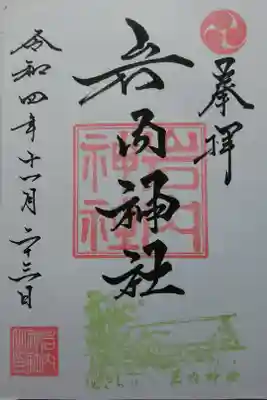 奉拝
岩内神社
岩内
神社
令和四年十一月二十三日
岩内神社